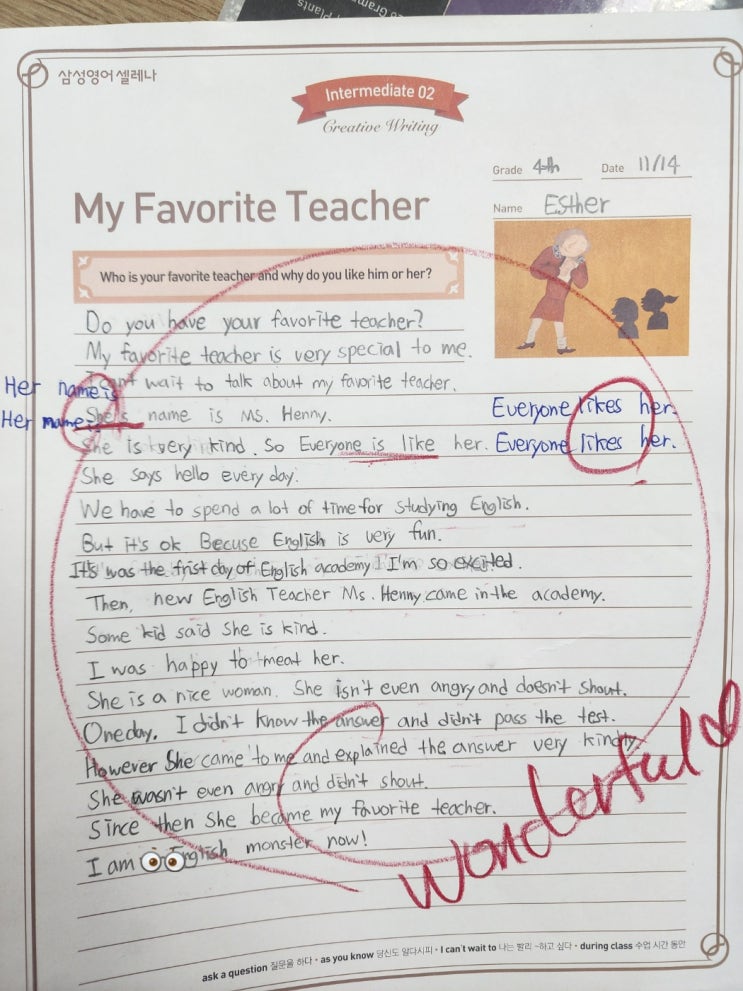 Plants
삼성영어 셀레나
Intermediate 02
Creative Writing
Grade 4th Date 11/14
My Favorite Teacher
Name Esther
Who is your favorite teacher and why do you like him or her?
Do you have your favorite teacher?
My favorite teacher is very special to me.
I can't wait to talk about my favorite teacher.
Her name is
She's name is Ms. Henny.
Everyone likes her.
Her name is
She is very kind. So Everyone is like her. Everyone likes her.
She says hello every day.
We have to spend a lot of time for studying English.
But it's ok Becuse English is very fun.
It's was the frist day of English academy! I'm so excited.
Then, new English Teacher Ms. Henny came in the academy.
Some kid said She is kind.
I was happy to meat her.
She is a nice woman. She isn't even angry and doesn't shout.
One day. I didn't know the answer and didn't pass the test.
However She came to me and explained the answer very kindly.
She wasn't even angry and didn't shout.
Since then She became my favorite teacher.
I am English monster now!
Wonderful
ask a question 질문을 하다 • as you know 당신도 알다시피 • I can't wait to 나는 빨리 ~하고 싶다 • during class 수업 시간 동안